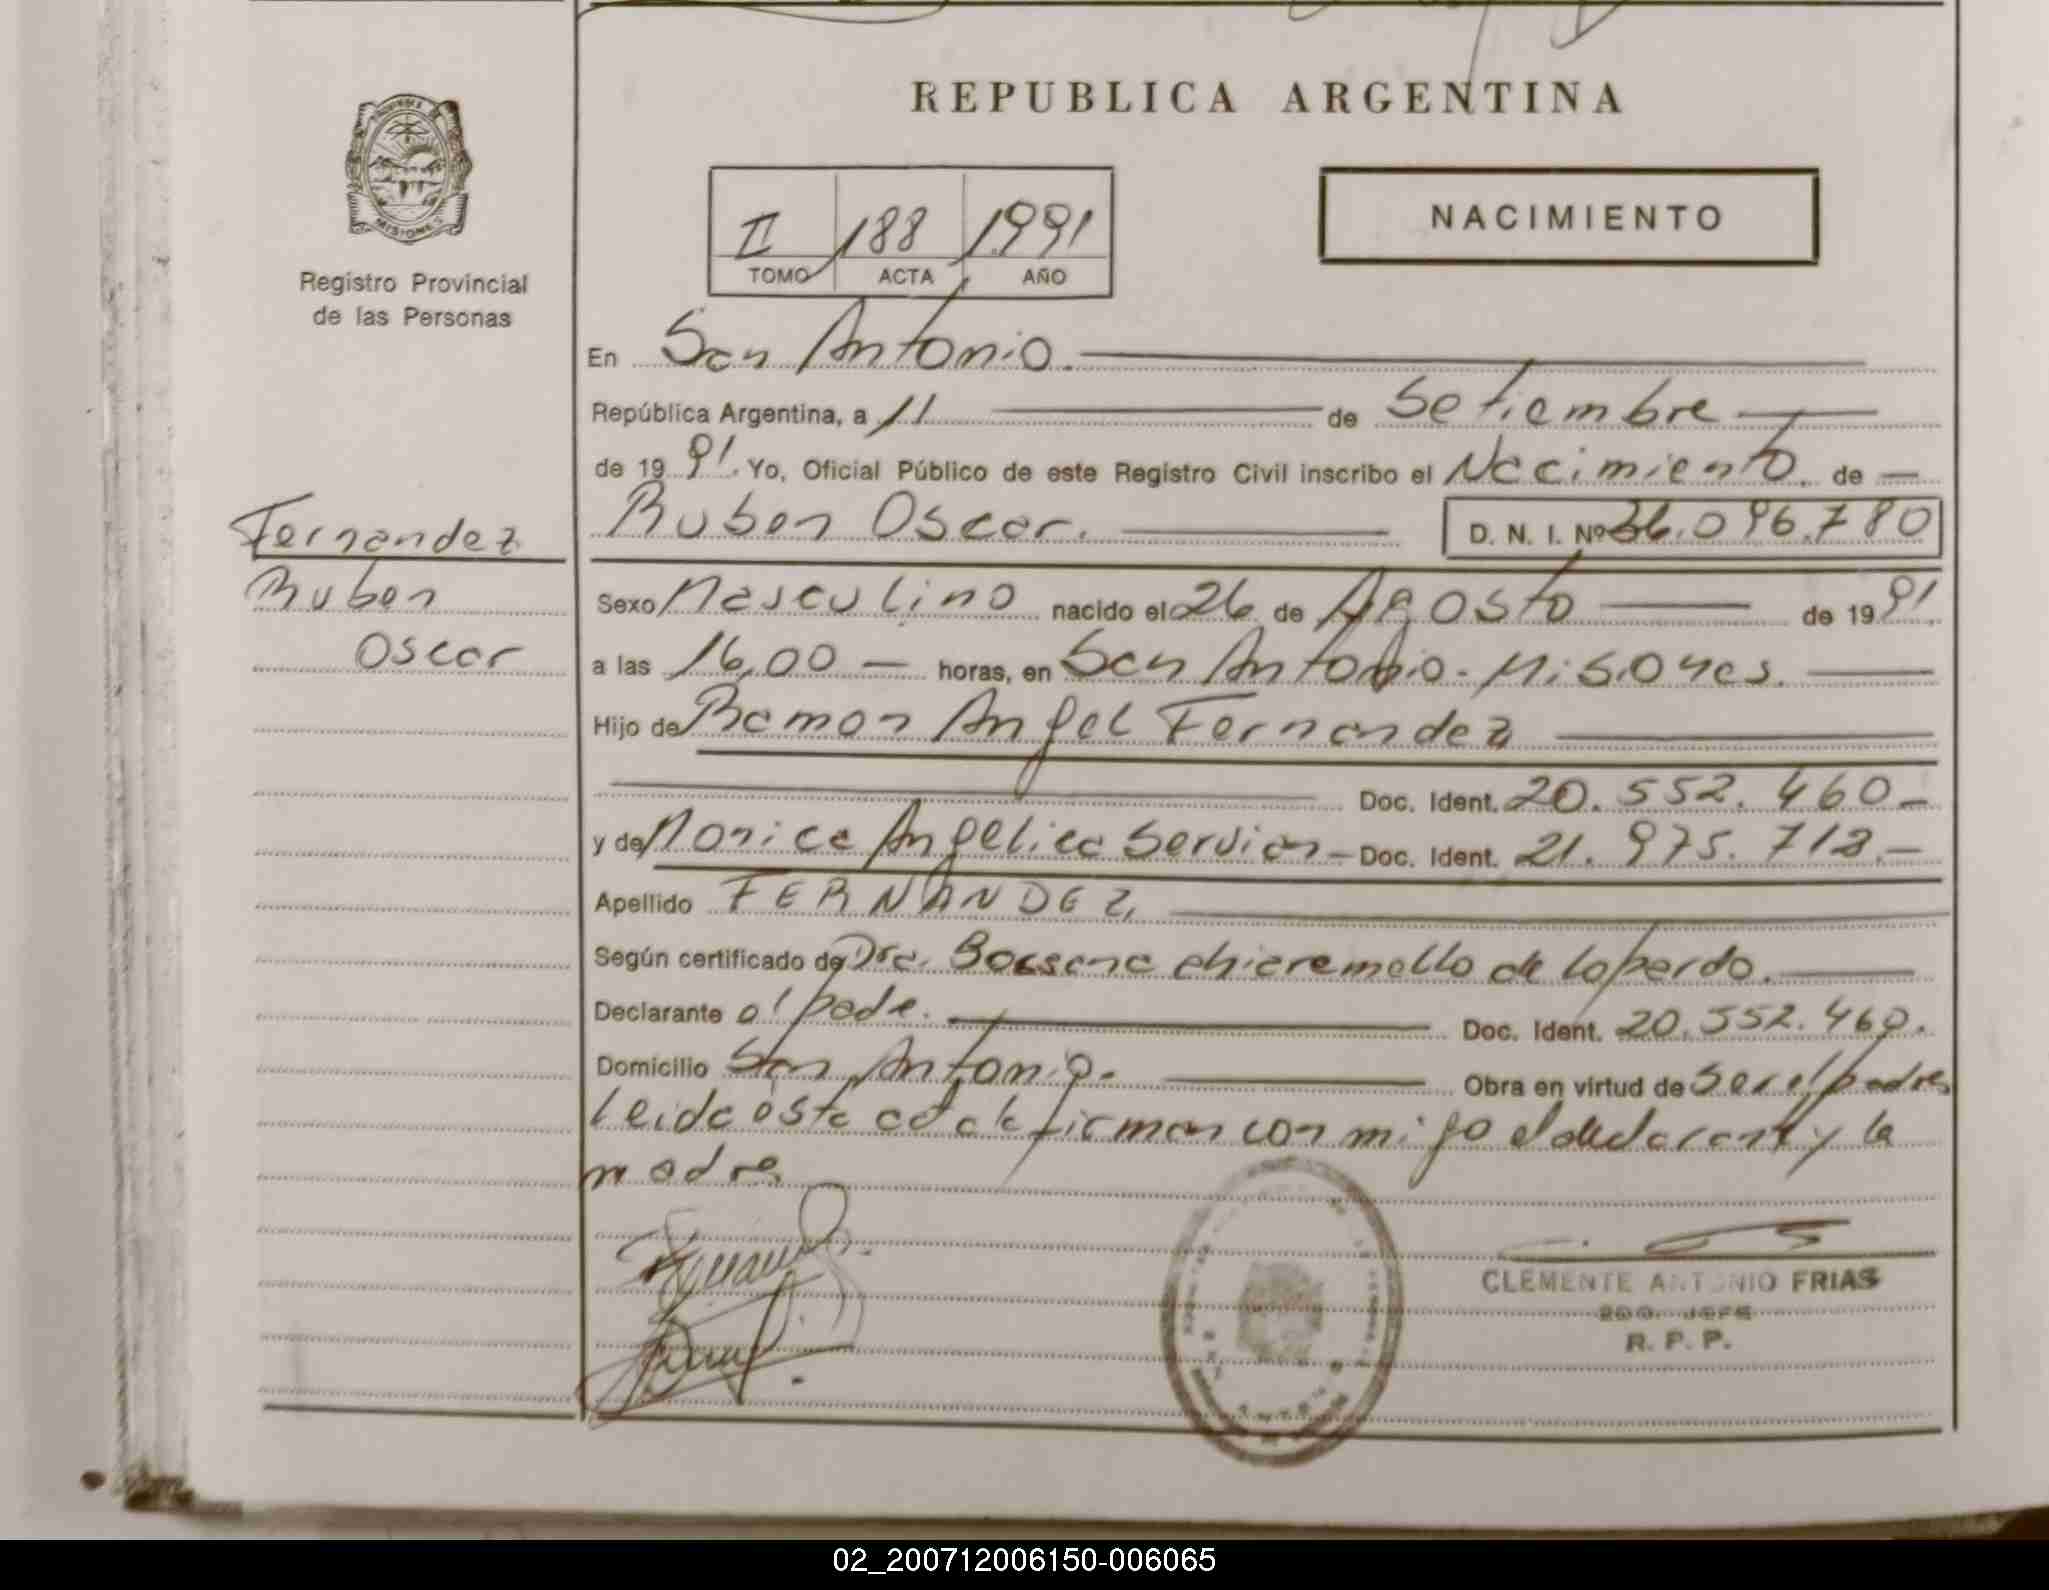 REPUBLICA ARGENTINA
MISIONES
Registro Provincial
de las Personas
II 188 1991
TOMO ACTA AÑO
NACIMIENTO
En San Antonio.
República Argentina, a 11 de Setiembre
de 19 91. Yo, Oficial Público de este Registro Civil inscribo el Nacimiento. de
Fernandez
Ruben
Oscar
Ruben Oscar. D. N. I. Nº 36.096.780
Sexo Masculino nacido el 26 de Agosto de 19 91.
a las 16,00 horas, en San Antonio - Misiones.
Hijo de Ramon Angel Fernandez
Doc. Ident. 20.552.460
y de Monica Angelica Servian Doc. Ident. 21.975.718.
Apellido FERNANDEZ,
Según certificado de Dra. chiaremello de loperdo.
Declarante el padre. Doc. Ident. 20.552.460.
Domicilio San Antonio. Obra en virtud de Ser el padre
leida esta acta firman con migo el declarante y la
madre
CLEMENTE ANTONIO FRIAS
2DO. JEFE
R. P. P.
02_200712006150-006065